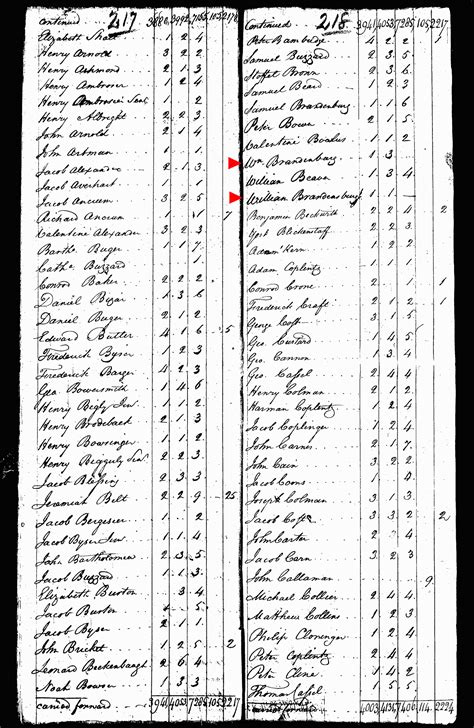 Continued 217 3880 3992 7155 105 217
Elizabeth 1 2 4
Henry Arnold 3 2 2
Henry Ashmond 2 1 3
Henry Ambroser 1 2 4
Henry 1 2
Henry Albright 2 2 3
John Arnold 2 1 4
John Artman 1 1
Jacob Alexander 2 1 3
Jacob Averhart 1 1
Jacob Ancum 3 2 5
Richard Ancum 1 1 7
Valentine Alexander 3 2
Barth. Buger 1 1 7
Cath. Buzzard 1
Conrod Baker 2 2 2
Daniel Bizar 1 3 6
Daniel Buger 2 1 2
Edward Butler 4 1 6 5
Frederick Byser 1 2 3
Frederick Barger 4 2 3
Geo. Bowersmith 1 4 6
Henry Begly Jun. 1 1 2
Henry Brodeback 1 1 2
Henry Bowsenger 1 1 2
Henry Sen. 1 2 2
Jacob Blessing 2 3 3
Jeremiah Belt 2 2 9 25
Jacob Bergesser 1 2
Jacob Byser Jun. 1 1 4
John Bartholomew 2 3 5
Jacob Buzzard 1 1 3
Elizabeth Burton 3 4
Jacob Burton 1 5
Jacob Byser 1 2
John Bricket 1 2 5 2
Leonard Beckenbaugh 2 6 4
Noah Bowen 1 3 3
carried forward 3941 4053 7285 105 2217
Continued 218 3941 4053 7285 105 2217
Peter Bambridge 4 2 2 1
Samuel Buzzard 2 3 5
Stoffel Brown 2 3 6
Samuel Beard 1 2 3
Samuel Brandenburg 1 1 6
Peter Bowen 2 1 5
Valentine 1 2
Wm. Brandenburg 1 3
William Beaon 1 3 4
William Brandenburg 1 1
Benjamin Beckwith 2 2 4 2
Yost Blickenstaff 2 2 3
Adam Kern 1 2
Adam Coplentz 1 1
Conrod Crone 2 1 1
Frederick Craft 2 1 2 1
George Coft 3 1 5
Geo. Custard 1 4 5
Geo. Cannon 1 3 4
Geo. Cassel 2 4 4
Henry Colman 2 1 2
Harman Coplentz 1 2 4
Jacob Coplenger 1 2 2
John Carnes 2 1 7
John Cain 3 2 2
Jacob Coons 1 4
Joseph Colman 3 1 3
Jacob 3 3 2 2
John Carter 2 4
Jacob Carn 3 2 3
John Callaman 9
Michael Collier 2 4 4
Matthew Collins 1 2 3
Philip Clonenger 1 1 2
Peter Coplentz 2 4 4
Peter Clena 1 4 2
Thomas Cassel 1 5 5
4003 4134 7406 114 2224